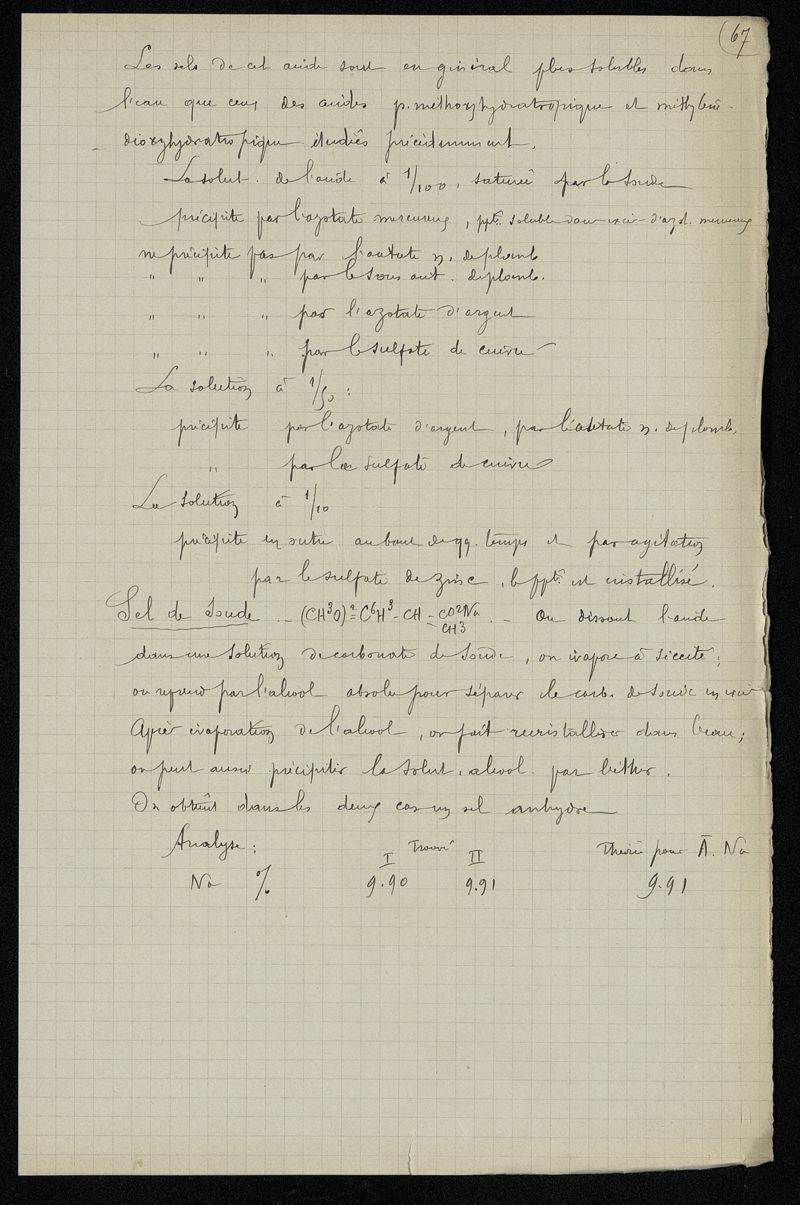 (67
Les sels de cet acide sont en général plus solubles dans
l'eau que ceux des acides p. méthoxyhydratropique et méthylène-
dioxyhydratropique étudiés précédemment.
La solut. de l'acide à 1/100, saturée par la soude
précipite par l'azotate mercureux, ppté soluble dans excès d'azot. mercureux
ne précipite pas par l'acétate n. de plomb
" " " par le sous acét. de plomb.
" " " par l'azotate d'argent
" " " par le sulfate de cuivre
La solution à 1/50 :
précipite par l'azotate d'argent, par l'acétate n. de plomb,
" par le sulfate de cuivre
La solution à 1/10
précipite en outre au bout de qq. temps et par agitation
par le sulfate de zinc, le ppté est cristallisé.
Sel de Soude. – (CH³O)²=C⁶H³-CH-CO²Na
CH3
. – On dissout l'acide
dans une solution de carbonate de soude, on évapore à siccité;
on reprend par l'alcool absolu pour séparer le carb. de soude en excès
Après évaporation de l'alcool, on fait recristalliser dans l'eau;
on peut aussi précipiter la solut. alcool. par l'éther.
On obtient dans les deux cas un sel anhydre
Analyse : Trouvé Théorie pour A. Na
I II
Na % 9.90 9.91 9.91